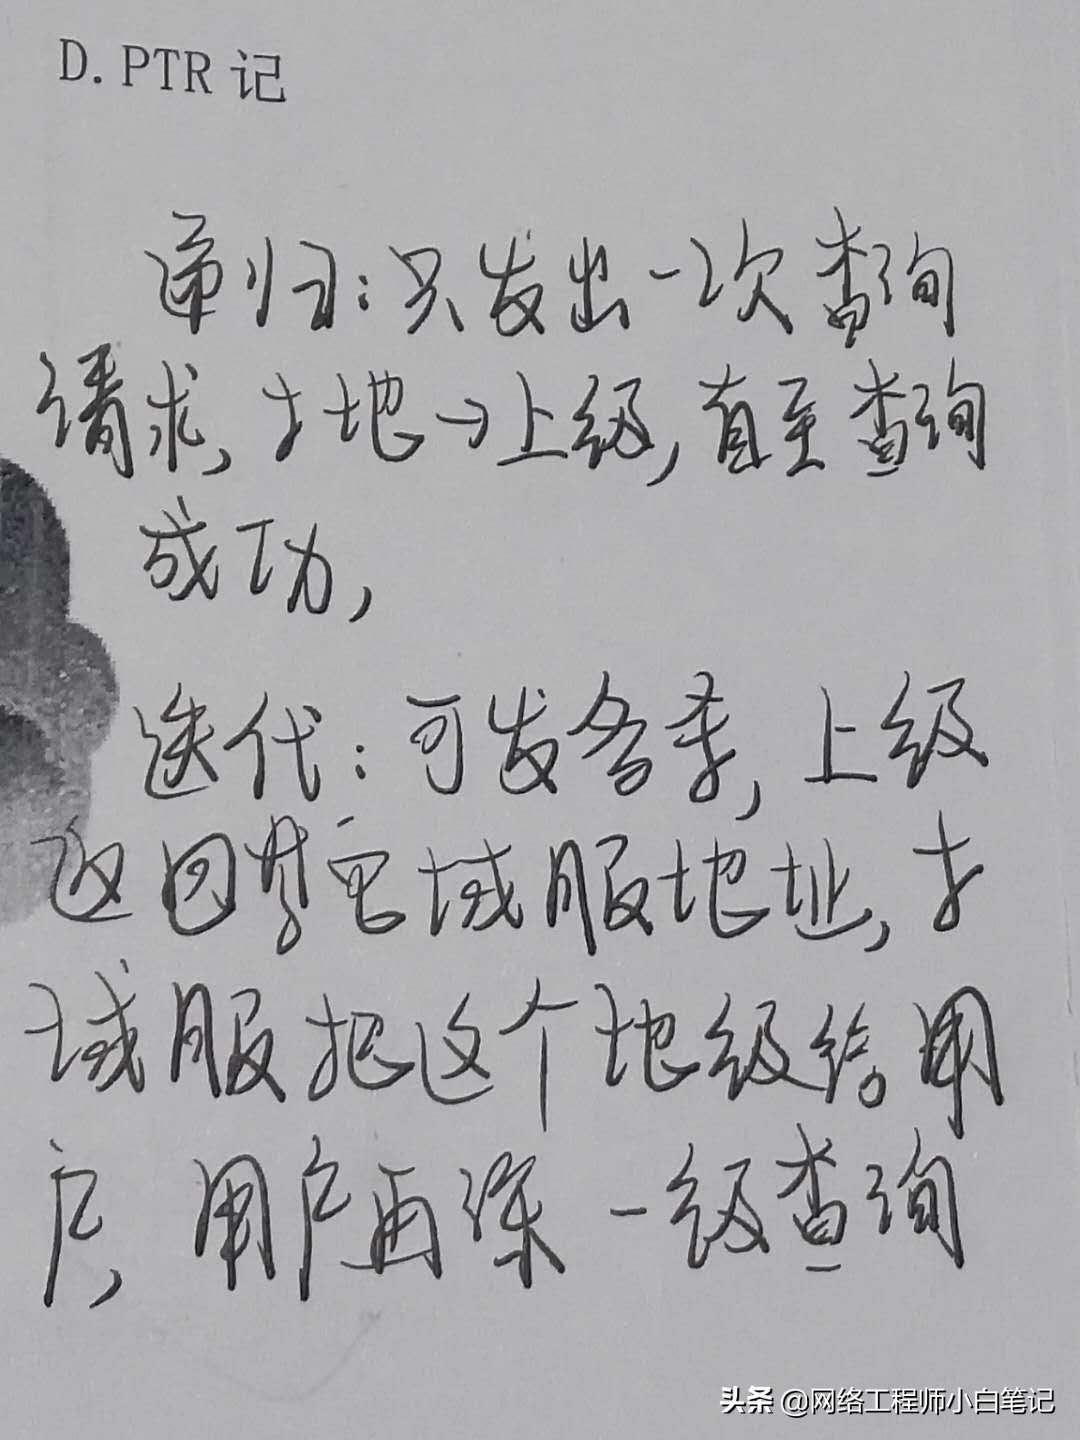 D. PTR 记
递归：只发出一次查询
请求，本地→上级，直至查询
成功，
迭代：可发多条，上级
返回其它域服地址，本
域服把这个地级给用
户，用户再深一级查询
头条 @网络工程师小白笔记